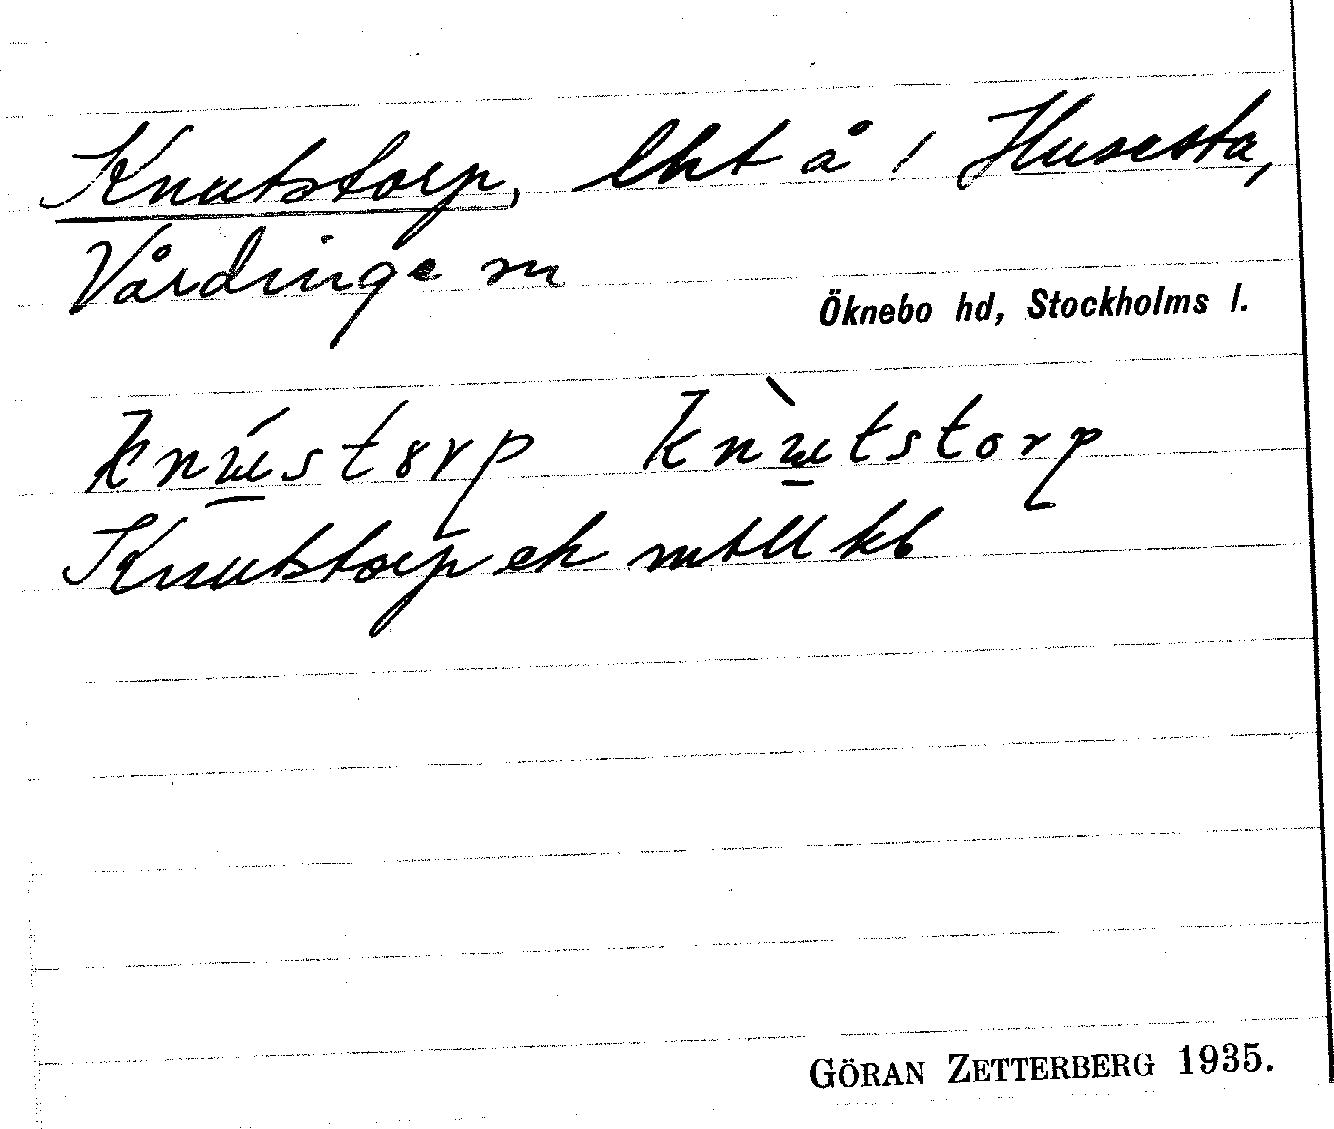 Knutstorp, lht å 1 Husesta,
Vårdinge sn
Öknebo hd, Stockholms l.
knústorp knùtstorp
Knutstorp ek mtll kb
GÖRAN ZETTERBERG 1935.